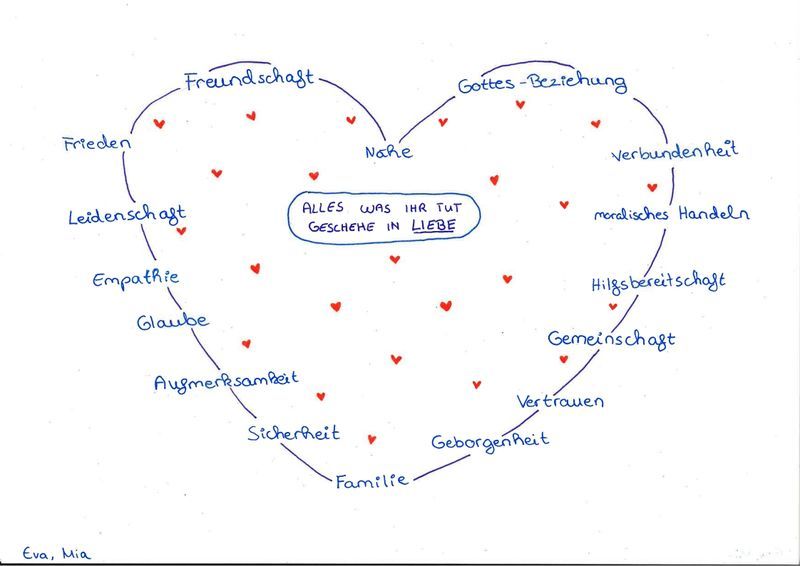 Freundschaft
Gottes-Beziehung
Frieden
Nähe
Verbundenheit
Leidenschaft
ALLES WAS IHR TUT
GESCHEHE IN LIEBE
moralisches Handeln
Empathie
Hilfsbereitschaft
Glaube
Gemeinschaft
Aufmerksamkeit
Vertrauen
Sicherheit
Geborgenheit
Familie
Eva, Mia